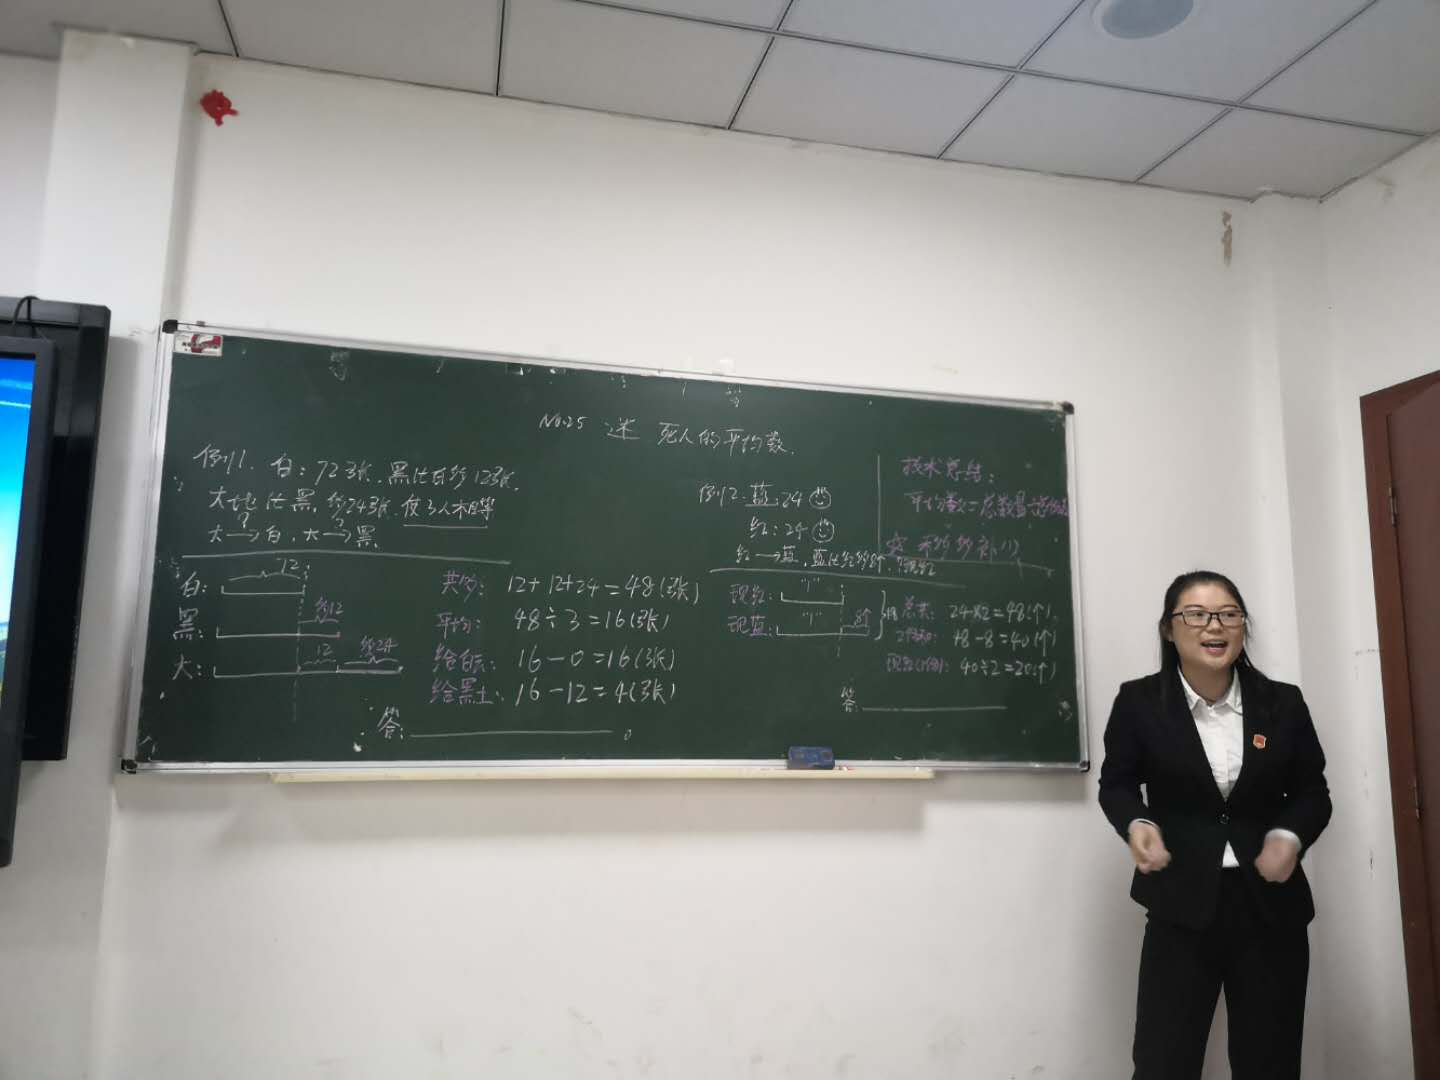 No.25 迷死人的平均数.
例1. 白: 72张, 黑比白多12张,
大地比黑多24张, 使3人相等
大→白, 大→黑
?
?
白:
72
黑:
多12
大:
12
多24
共多: 12+12+24=48(张)
平均: 48÷3=16(张)
给白: 16-0=16(张)
给黑土: 16-12=4(张)
答:
例2. 蓝: 24
红: 24
红→蓝, 蓝比红多8个, 现红
现红: "1"
现蓝: "1" 8个
总数: 24×2=48(个)
48-8=40(个)
40÷2=20(个)
答:
技术总结:
平均数=总数量÷总份数
☆ 移多补少